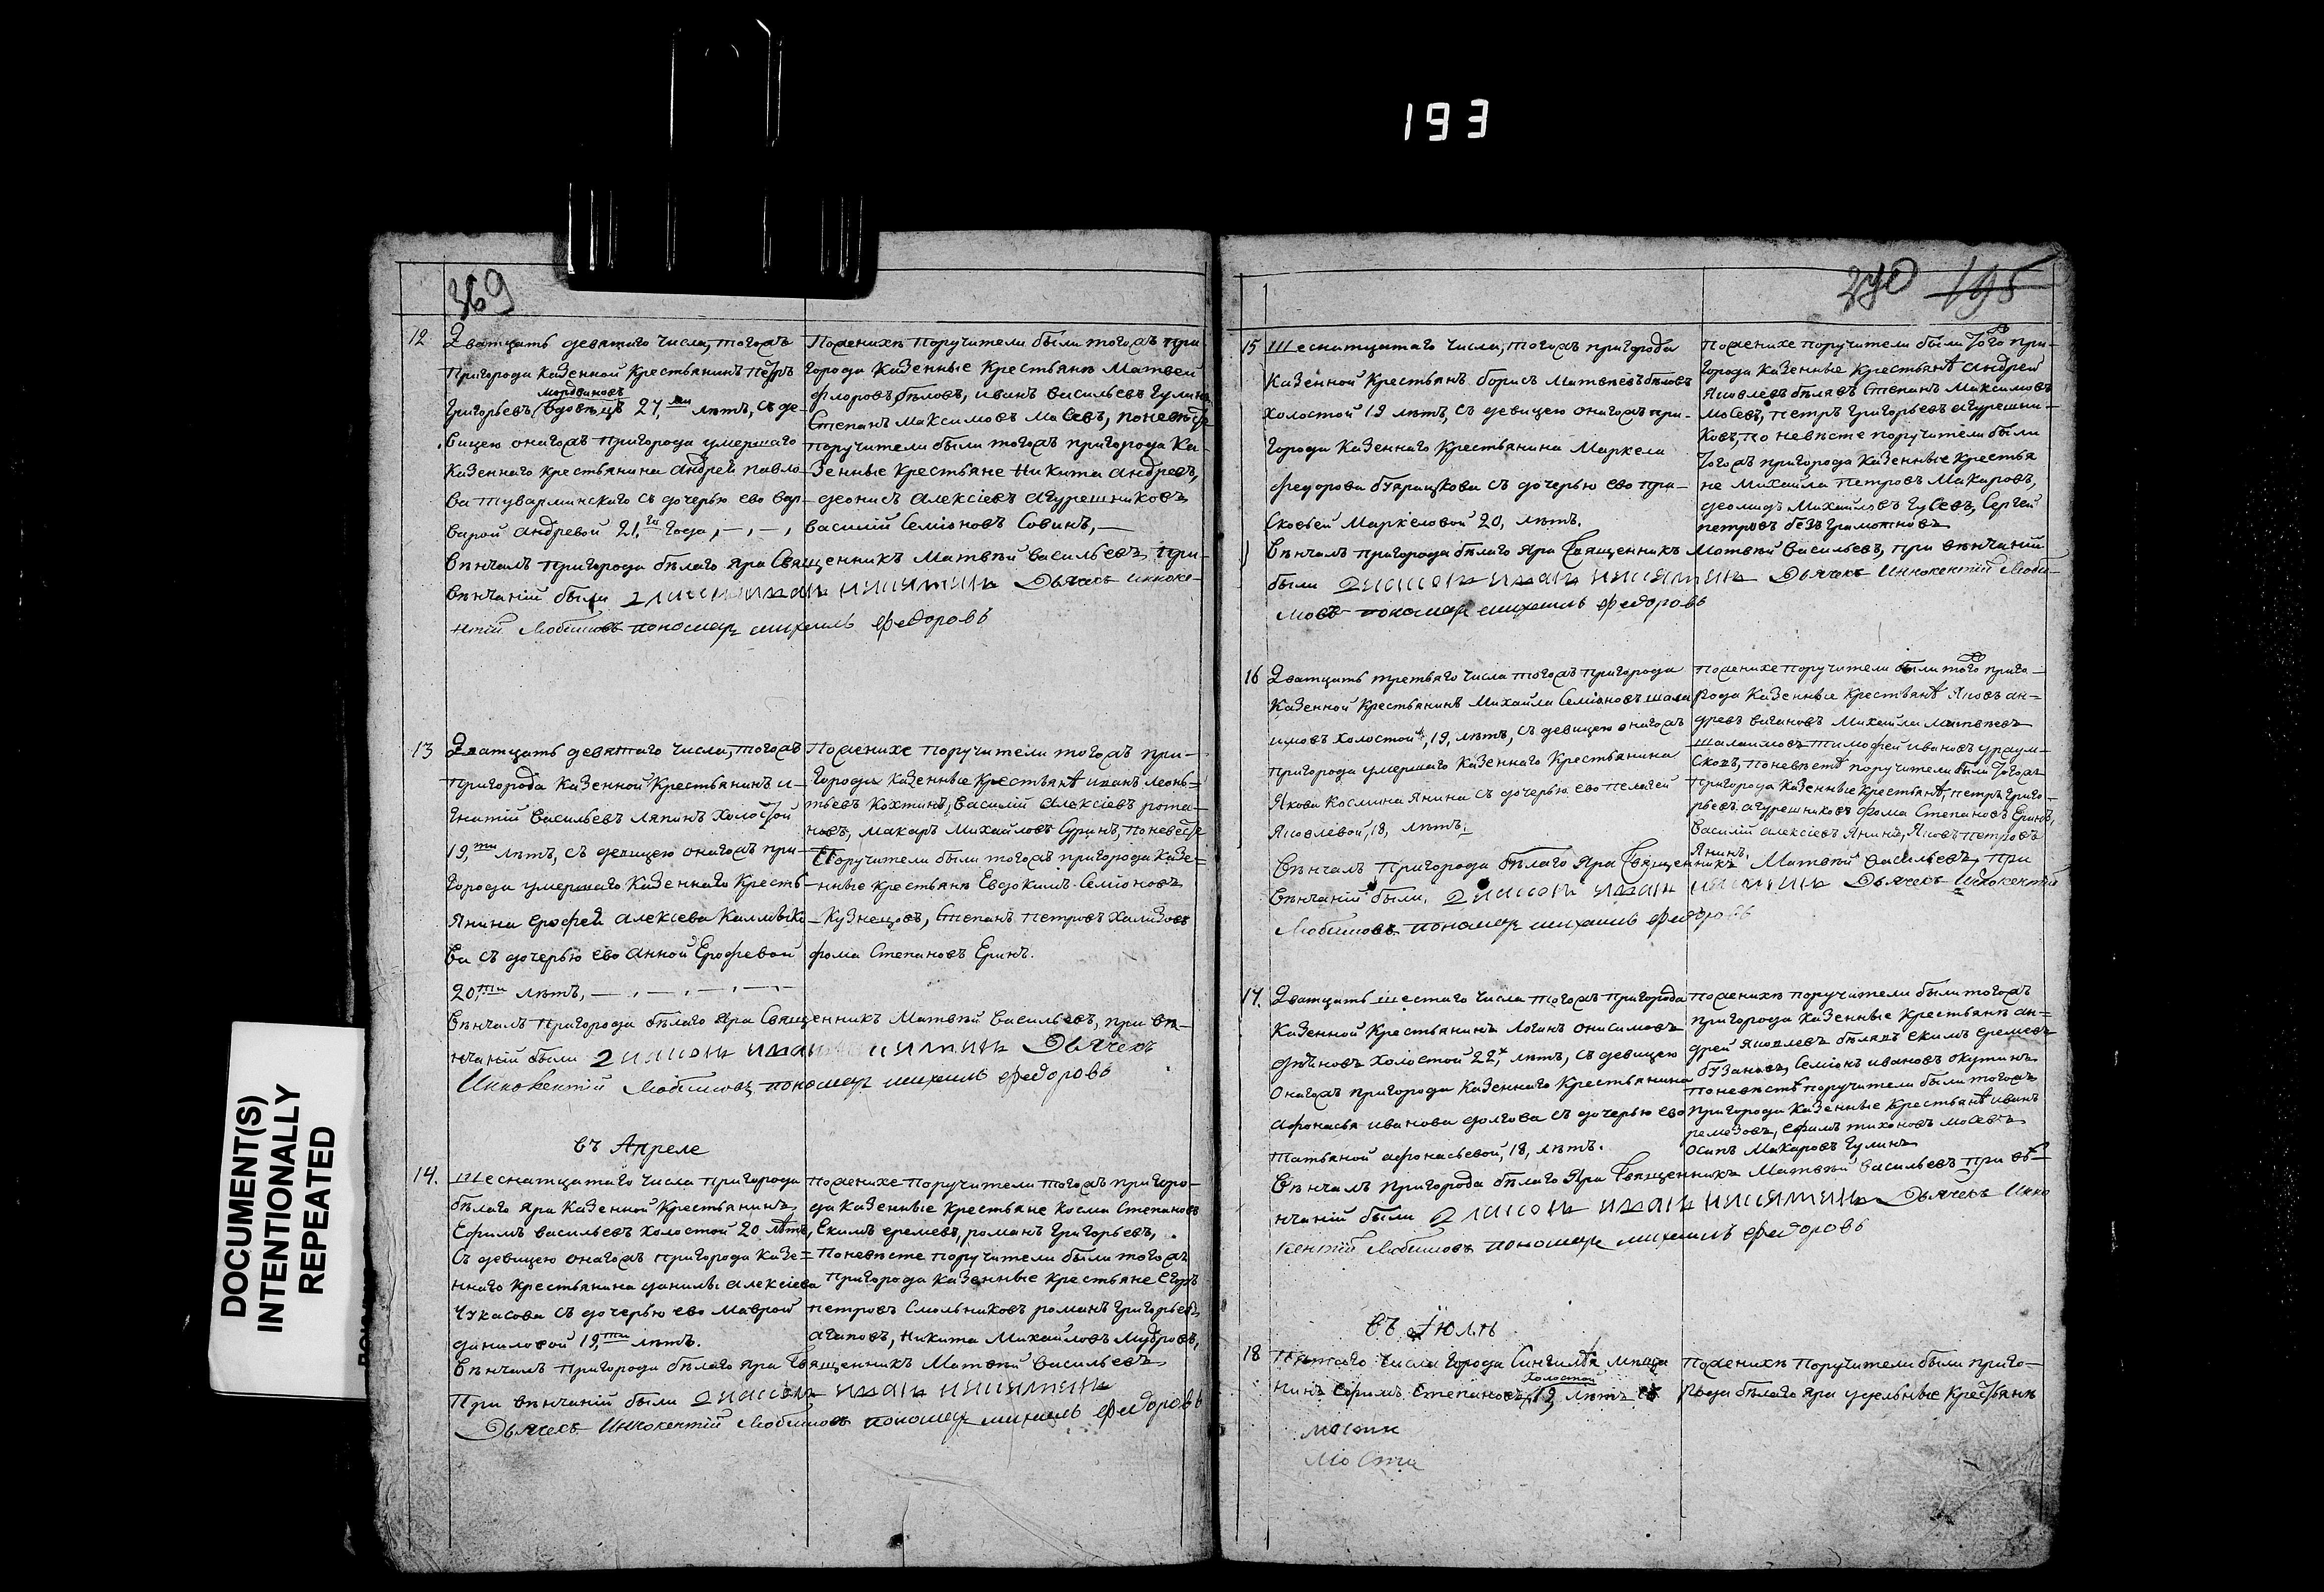 193
DOCUMENT(S)
INTENTIONALLY
REPEATED
369
12
Дватцать девятаго числа, тогожъ
Пригорода казенной крестьянинъ Петръ
мордвиновъ
Григорьевъ вдовецъ 27.ми лѣтъ, съ де-
вицею онагожъ пригорода умершаго
казеннаго крестьянина андрей павло-
ва туварминскаго съ дочерью ево вар-
варой андревой 21.го года, – , – ,
По женихѣ поручители были тогожъ при
города казенные крестьянѣ Матвеи
флоровъ бѣловъ, иванъ васильевъ Гулинъ
Степанъ Максимовъ Мосевъ, по невѣсте
поручители были тогожъ пригорода ка-
зенные крестьяне Никита андревъ,
деонисъ алексіевъ агурешниковъ
василий Семіоновъ Совинъ, —
вѣнчалъ пригорода бѣлаго Яра Священникъ Матвѣй васильевъ, при-
вѣнчаній были Дьячекъ инноке-
нтій Любимовъ пономарь михаилъ федоровъ
13
Дватцать девятаго числа, тогожъ
пригорода казенной крестьянинъ и-
гнатій васильевъ ляпинъ холостой
19,ти лѣтъ, съ девицею онагожъ при-
города умершаго казеннаго кресть-
янина ерофей алексіева Калмыко-
ва съ дочерью ево анной Ерофевой
20,ти лѣтъ, — , — , — , —
По женихе поручители тогожъ при-
города казенные крестьянѣ иванъ леонь-
тьевъ Кохтинъ, василий алексіевъ рота-
новъ, макаръ Михайловъ Суринъ, по невесте
Поручители были тогожъ пригорода казе-
нные крестьянѣ Евдокимъ Семіоновъ
Кузнецовъ, Степанъ петровъ Хализовъ
фома Степановъ Еринъ.
вѣнчалъ пригорода бѣлаго Яра Священникъ Матвѣй васильевъ, при вѣ-
нчаній были Дьячекъ
Иннокентій Любимовъ пономарь михаилъ федоровъ
въ Апреле
14.
Шеснатцатаго числа пригорода
бѣлаго яра казенной крестьянинъ
Ефимъ васильевъ холостой 20 лѣтъ,
съ девицею онагожъ пригорода казе-
ннаго крестьянина данилы алексіева
Чукасова съ дочерью ево Маврой
даниловой 19,ти лѣтъ.
по женихе поручители тогожъ пригоро-
да казенные крестьяне Косма Степановъ
Екимъ еремевъ, романъ Григорьевъ,
по невѣсте поручители были тогожъ
пригорода казенные крестьяне Егоръ
петровъ Смольниковъ романъ Григорьевъ
агаповъ, Никита Михайловъ Мудровъ,
вѣнчалъ пригорода бѣлаго яра Священникъ Матвѣй васильевъ
При вѣнчаній были
Дьячекъ Иннокентій Любимовъ пономарь михаилъ федоровъ
195
15
Шеснатцатаго числа, тогожъ пригорода
Казенной крестьянъ борисъ Матвѣевъ бѣловъ
холостой 19 лѣтъ, съ девицею онагожъ при-
города казеннаго крестьянина Маркела
федорова съ дочерью ево пра-
сковьей Маркеловой 20, лѣтъ.
по женихе поручители были того при-
города казенные крестьянѣ андрей
Яковлевъ бѣлявъ Степанъ Максимовъ
Мосевъ, петръ Григорьевъ агурешни-
ковъ, по невѣсте поручители были
тогожъ пригорода казенные крестья
не Михайла петровъ Макаровъ,
деомидъ Михайловъ Гусевъ, Сергей
петровъ безъ Грамотновъ
вѣнчалъ пригорода бѣлаго яра Священникъ Матвѣй васильевъ, при вѣнчаній
были Дьячекъ Иннокентій Люби-
мовъ пономарь михаилъ федоровъ
16
Дватцать третьяго числа тогожъ пригорода
казенной крестьянинъ Михайла Семіоновъ шала
имовъ холостой, 19, лѣтъ, съ девицею онагожъ
пригорода умершаго казеннаго крестьянина
Якова Космина Янина съ дочерью ево пелагей
Яковлевой, 18, лѣтъ.
по женихе поручители были того приго-
рода казенные крестьянѣ Яковъ ан-
древъ вагановъ Михайла матвѣевъ
шалаимовъ тимофей ивановъ
сковъ, по невѣсте поручители были тогожъ
пригорода казенные крестьянѣ, петръ григо-
рьевъ агурешниковъ фома Степановъ Еринъ,
василий алексіевъ Янинъ, Яковъ петровъ
Янинъ.
вѣнчалъ Пригорода бѣлаго яра Священникъ Матвѣй васильевъ, при
вѣнчаній были, Дьячекъ Иннокентій
Любимовъ пономарь михаилъ федоровъ
17.
Дватцать шестаго числа тогожъ пригорода
казенной крестьянинъ Логинъ онисимовъ
холостой 22,х лѣтъ, съ девицею
онагожъ пригорода казеннаго крестьянина
афонасья иванова долгова съ дочерью ево
Татьяной афонасьевой, 18, лѣтъ.
по женихѣ поручители были тогожъ
пригорода казенные крестьянѣ ан-
дрей яковлевъ бѣлявъ екимъ еремевъ
бузановъ, Семіонъ ивановъ окутинъ
по невѣстѣ поручители были тогожъ
пригорода казенные крестьянѣ иванъ
ремезовъ, ефимъ тихоновъ мосевъ
осипъ Макаровъ Гулинъ
вѣнчалъ пригорода бѣлаго яра Священникъ Матвѣй васильевъ при вѣ-
нчаній были Дьячекъ Инно
кентій Любимовъ пономарь михаилъ федоровъ
въ Июлѣ
18
Пятаго числа города Сингилѣя мѣща
холостой
нинъ Ефимъ Степановъ, 19, лѣтъ съ
по женихѣ поручители были приго-
рода бѣлаго яра удельные крестьянѣ